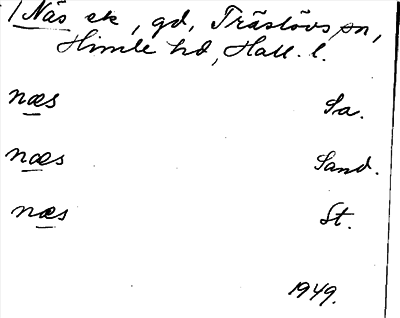 Näs ek, gd, Träslövs sn,
Himle hd, Hall. l.
næs Sa.
næs Sand.
næs St.
1949.